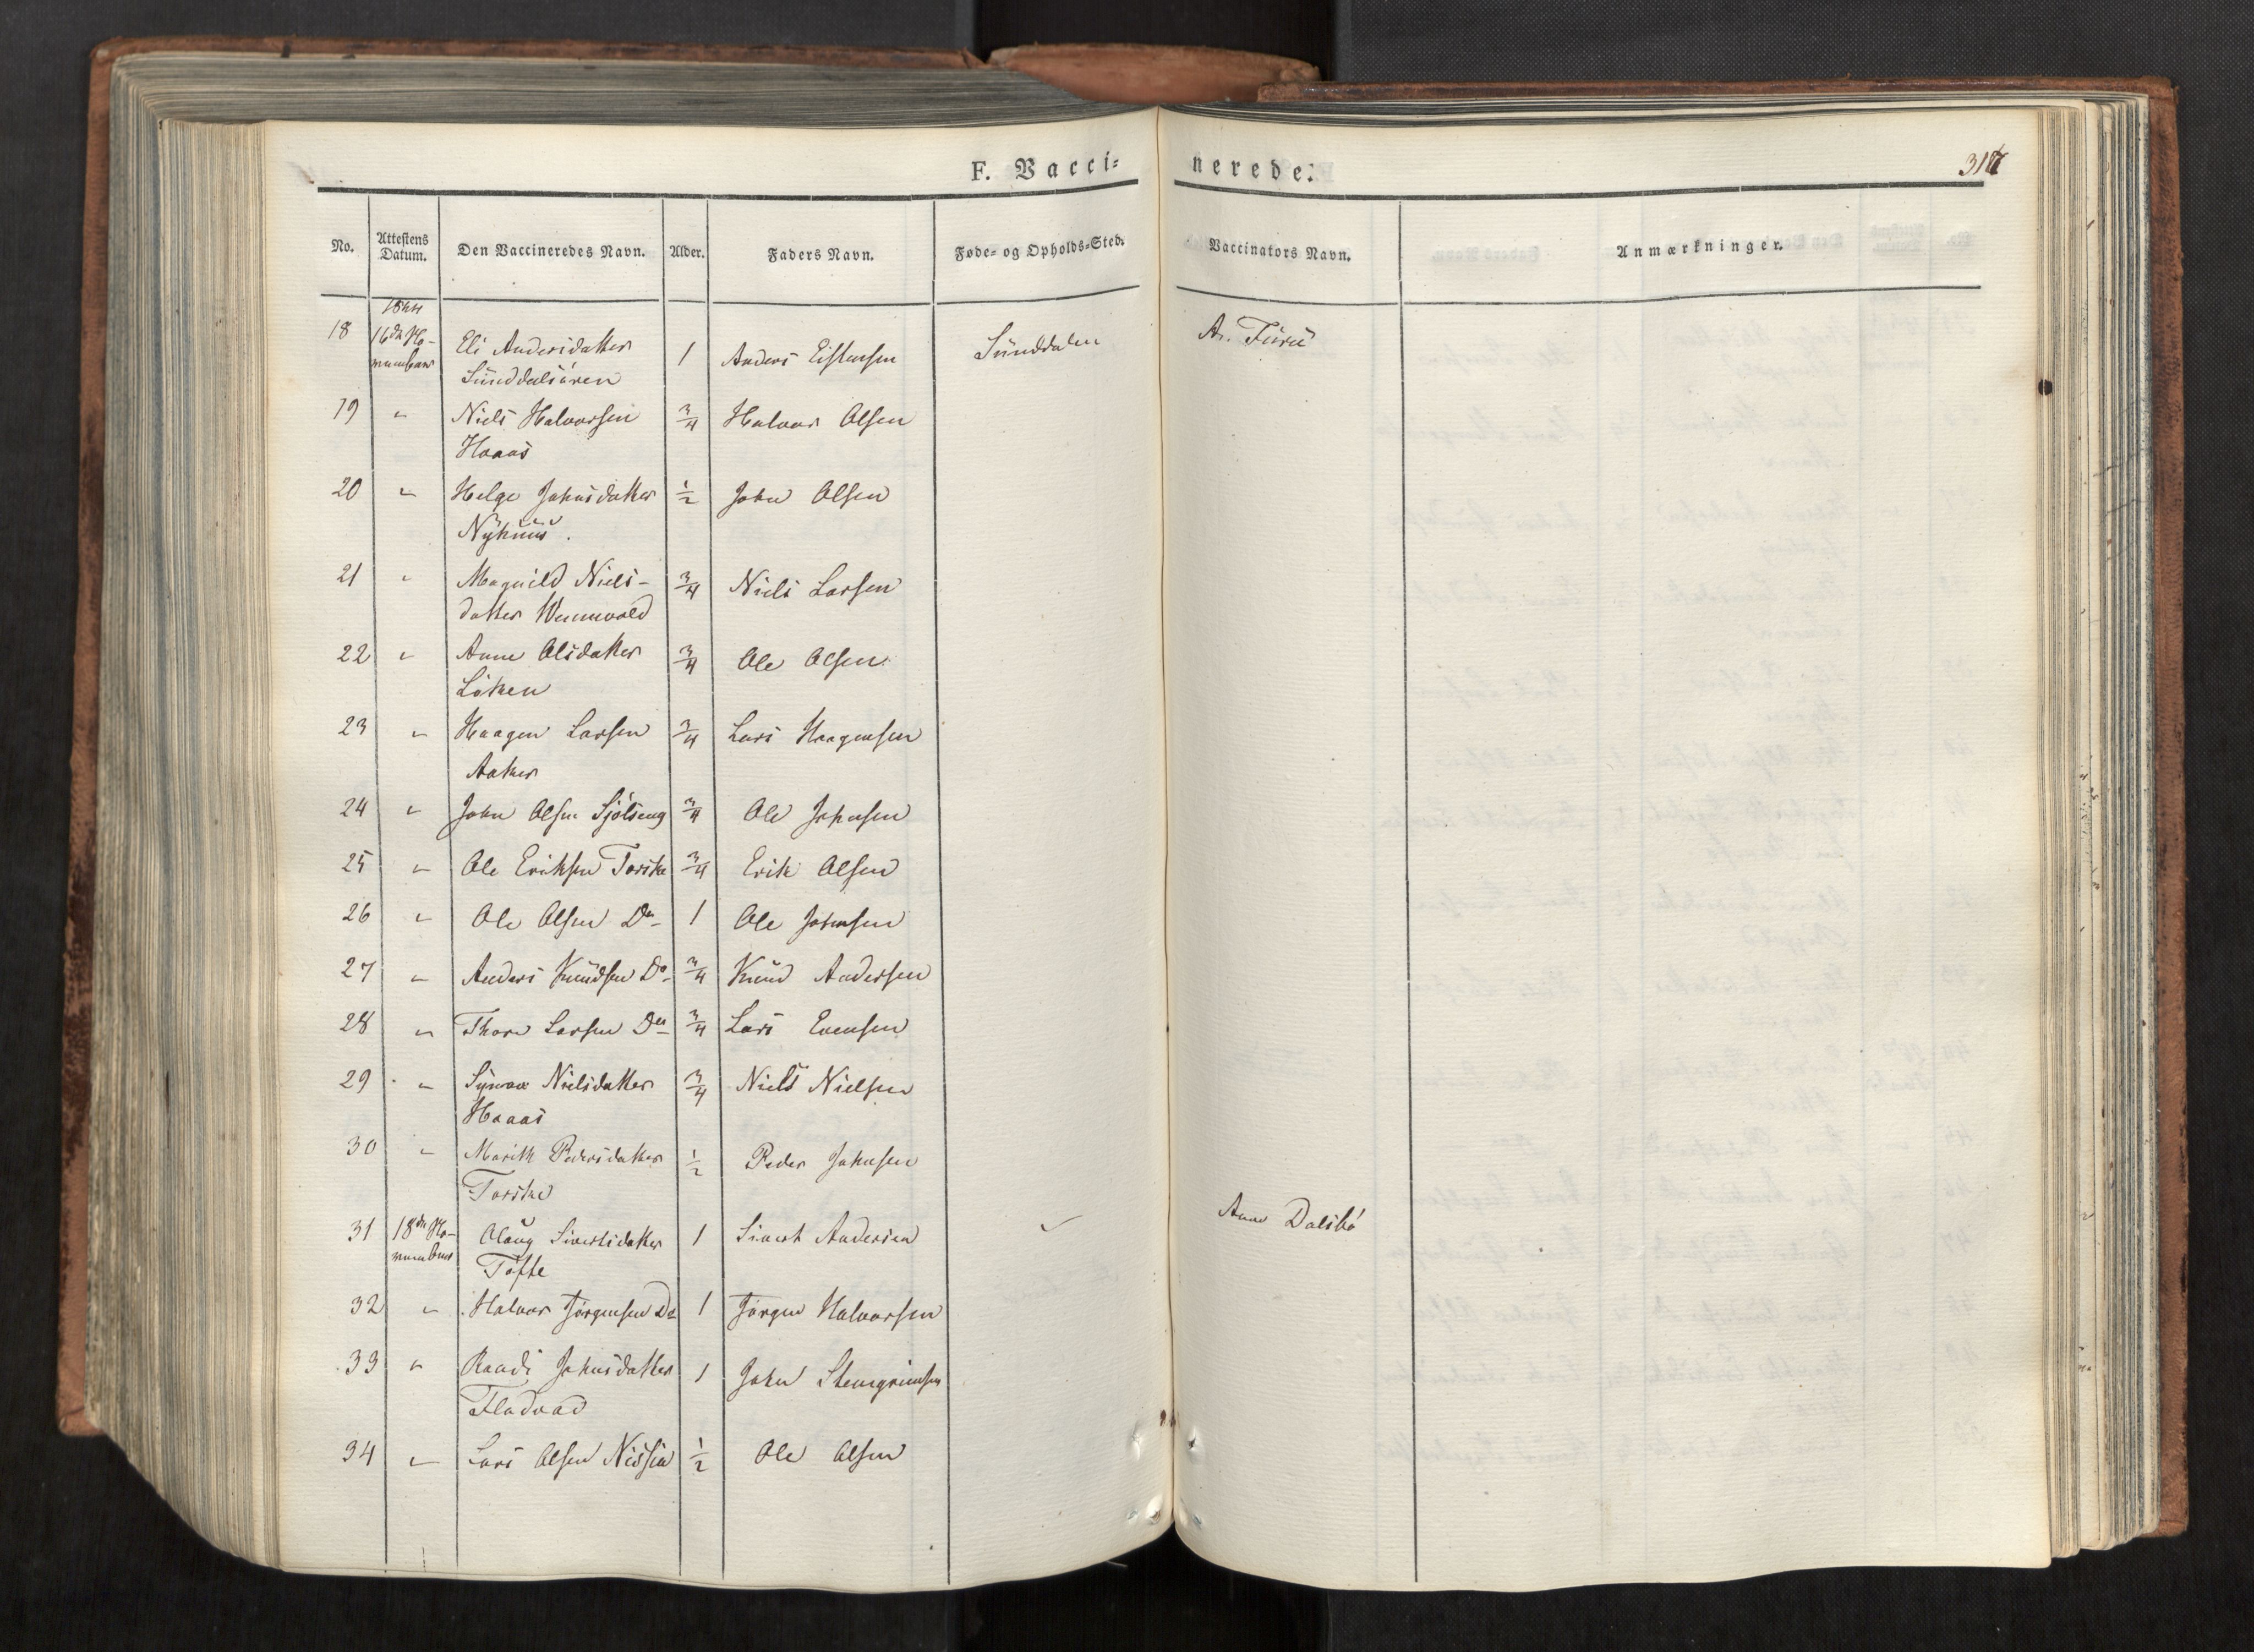 F. Vacci-
nerede.
317
No.
Attestens Datum.
Den Vaccineredes Navn.
Alder.
Faders Navn.
Føde- og Opholds-Sted.
Vaccinators Navn.
Anmærkninger.
1844
18 16de No- Eli Andersdatter 1 Anders Eistensen Sunddalen A. Furu
vember Sunddalsören
19 " Niels Halvorsen 3/4 Halvor Olsen
Haaas
20 " Helge Johnsdatter 1/2 John Olsen
Nyhuus.
21 " Magnild Niels- 3/4 Niels Larsen
datter Wennevold
22 " Anne Olsdatter 3/4 Ole Olsen
Löken
23 " Haagen Larsen 3/4 Lars Haagensen
Aaker
24 " John Olsen Sjölseng 3/4 Ole Johnsen
25 " Ole Eriksen Torske 3/4 Erik Olsen
26 " Ole Olsen Do 1 Ole Johnsen
27 " Anders Knudsen Do 3/4 Knud Andersen
28 " Thore Larsen Do 3/4 Lars Evensen
29 " Nielsdatter 3/4 Niels Nielsen
Haaas
30 " Marith Pedersdatter 1/2 Peder Johnsen
Torske
31 18de No- Olaug Sivertsdatter 1 Sivert Andersen Anne Dalsbö
vember Tofte
32 " Halvor Jörgensen Do 1 Jörgen Halvorsen
33 " Raadi Johnsdatter 1 John Steengrimsen
Fladvad
34 " Lars Olsen 1/2 Ole Olsen